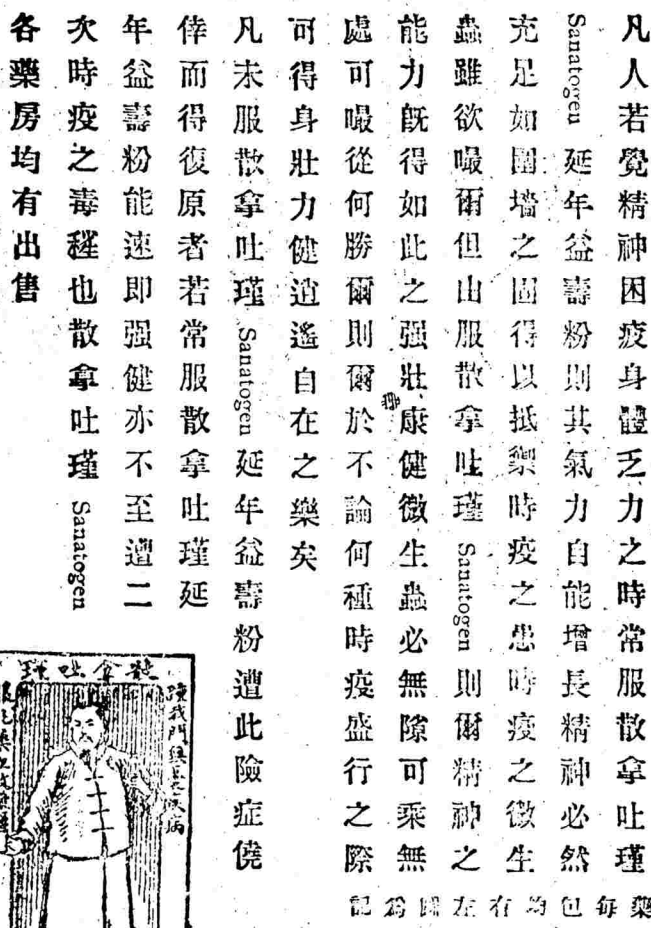 凡人若覺精神困疲身體乏力之時常服散拿吐瑾
Sanatogen 延年益壽粉則其氣力自能增長精神必然
充足如圍墻之固得以抵禦時疫之患時疫之微生
蟲雖欲嘬爾但由服散拿吐瑾 Sanatogen 則爾精神之
能力既得如此之强壯康健微生蟲必無隙可乘無
處可嘬從何勝爾則爾於不論何種時疫盛行之際
可得身壯力健逍遙自在之樂矣
凡未服散拿吐瑾 Sanatogen 延年益壽粉遭此險症僥
倖而得復原者若常服散拿吐瑾延
年益壽粉能速即强健亦不至遭二
次時疫之毒氂也散拿吐瑾 Sanatogen
各藥房均有出售
藥每包均有左圖為記
散拿吐瑾